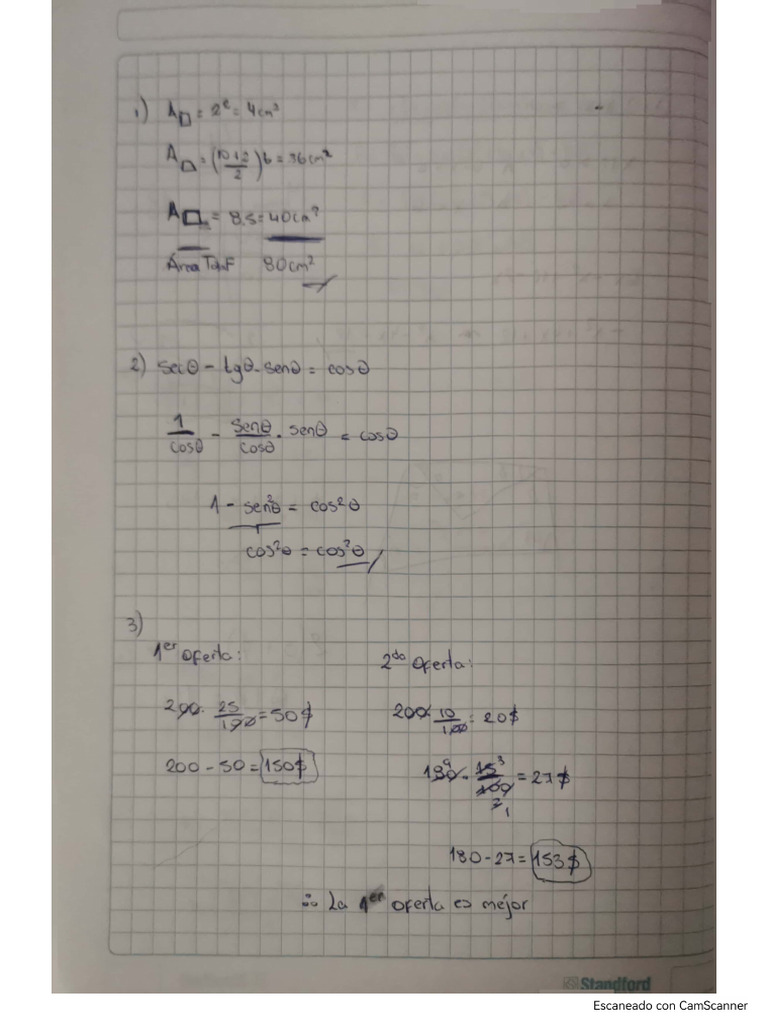 1) A□ = 2² = 4cm²
A⏢ = (10+2/2)6 = 36cm²
A▱ = 8.5 = 40cm²
Área Total 80cm²
2) secθ - tgθ · senθ = cosθ
1/cosθ - senθ/cosθ · senθ = cosθ
1 - sen²θ = cos²θ
cos²θ = cos²θ
3)
1er oferta:
200 · 25/100 = 50$
200 - 50 = 150$
2do oferta:
200 · 10/100 = 20$
180 9 · 15 3/100 2 1 = 27$
180 - 27 = 153$
∴ La 1er oferta es mejor
Standford
Escaneado con CamScanner